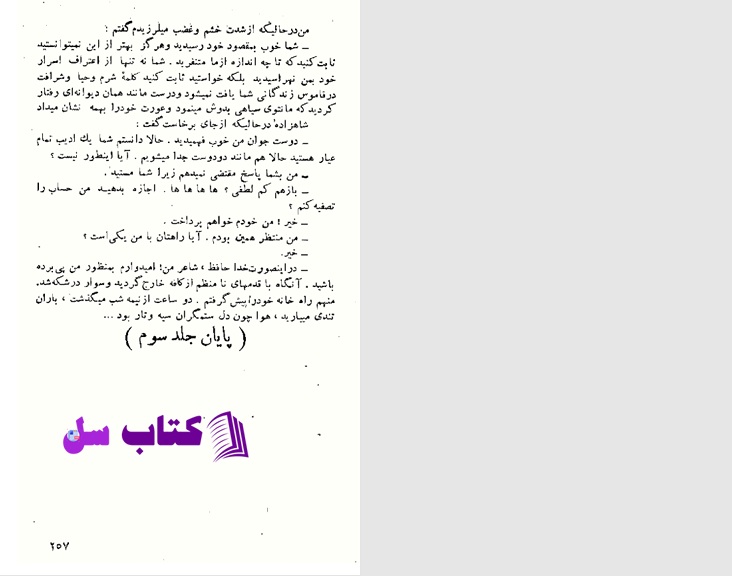 من‌درحالیکه ازشدت خشم وغضب میلرزیدم‌گفتم :
ـ شما خوب بمقصود خود رسیدید وهرگز بهتر از این نمیتوانستید
ثابت‌کنیدکه تا چه اندازه ازما متنفرید . شما نه تنها از اعتراف اسرار
خود بمن نهراسیدید بلکه خواستید ثابت کنید کلمهٔ شرم وحیا وشرافت
درقاموس زندگانی شما یافت نمیشود ودرست مانند همان دیوانه‌ای رفتار
کردیدکه مانتوی سیاهی بدوش مینمود وعورت خودرا بهمه نشان میداد
شاهزاده درحالیکه ازجای برخاست‌گفت :
ـ دوست جوان من خوب فهمیدید . حالا دانستم شما یك ادیب تمام
عیار هستید حالا هم مانند دودوست جدا میشویم . آیا اینطور نیست ؟
ـ من بشما پاسخ مقتضی نمیدهم زیرا شما مستید .
ـ بازهم کم لطفی ؟ ها ها ها ها . اجازه بدهید من حساب را
تصفیه‌کنم ؟
ـ خیر ! من خودم خواهم پرداخت .
ـ من منتظر همین بودم . آیا راهتان با من یکی‌است ؟
ـ خیر.
ـ دراینصورت‌خدا حافظ ، شاعر من! امیدوارم بمنظور من پی‌برده
باشید . آنگاه با قدمهای نا منظم ازکافه خارج‌گردید وسوار درشکه‌شد.
منهم راه خانه خودراپیش‌گرفتم . دو ساعت ازنیمه شب میگذشت ، باران
تندی میبارید ، هوا چون دل ستمگران سیه وتار بود ...
( پایان جلد سوم )
کتاب سل
۲۵۷